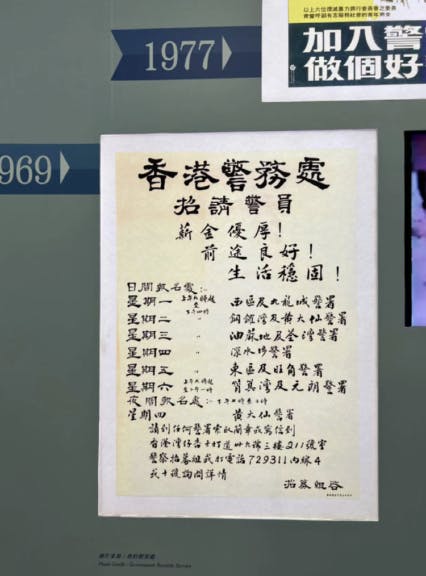 1977
以上六位撲滅暴力罪行委員會之委員
加入警
做個好
1969
香港警務處
招請警員
薪金優厚!
前途良好!
生活穩固!
日間報名處:-
星期一 上午九時起至下午四時 西區及九龍城警署
星期二 〃 銅鑼灣及黃大仙警署
星期三 〃 油蔴地及荃灣警署
星期四 〃 深水埗警署
星期五 〃 東區及旺角警署
星期六 上午九時起至下午一時 筲箕灣及元朗警署
夜間報名處:-
星期四 黃大仙警署
請到任何警署索取簡章或寫信到
香港灣仔告士打道卅九號三樓211號室
警察招募組或打電話729311內線4
或十號詢問詳情
招募組啓
Photo Credit: Government Records Service